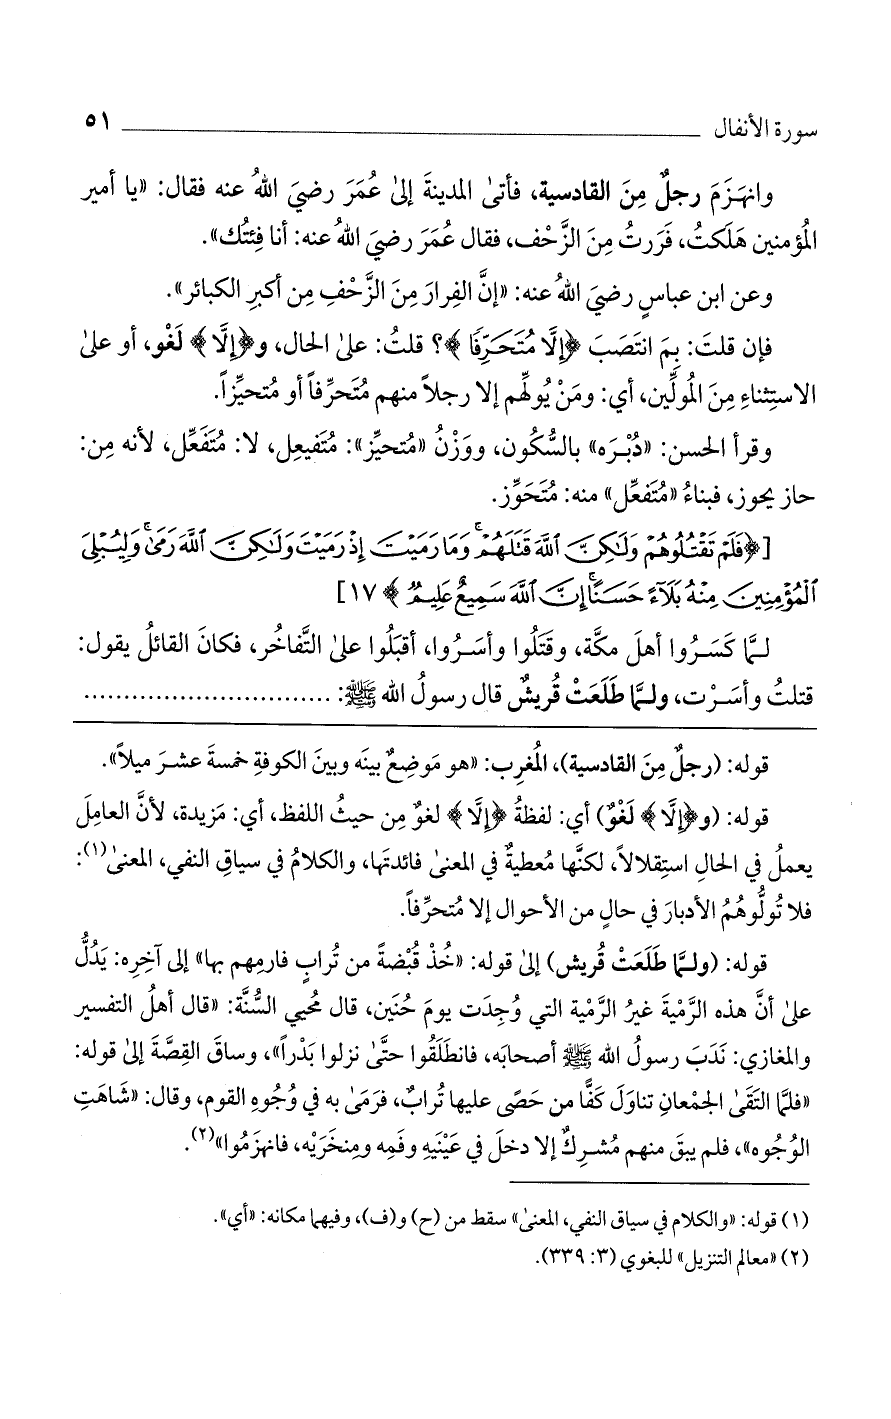 سورة الأنفال ٥١
وانهَزَمَ رجلٌ مِنَ القادسية، فأتىٰ المدينةَ إلىٰ عُمَرَ رضيَ اللهُ عنه فقال: «يا أمير
المُؤمنين هَلَكتُ، فَررتُ مِنَ الزَّحْف، فقال عُمَرَ رضيَ اللهُ عنه: أنا فِئتُك».
وعن ابن عباسٍ رضيَ اللهُ عنه: «إنَّ الفِرارَ مِنَ الزَّحْفِ مِن أكبرِ الكبائر».
فإن قلتَ: بِمَ انتَصَبَ ﴿إِلَّا مُتَحَرِّفًا﴾؟ قلتُ: علىٰ الحال، و﴿إِلَّا﴾ لَغْو، أو علىٰ
الاستِثناءِ مِنَ المُولِّين، أي: ومَنْ يُولِّهم إلا رجلاً منهم مُتَحرِّفاً أو مُتحيِّزاً.
وقرأ الحسن: «دُبْرَه» بالسُّكُون، ووَزْنُ «مُتحيِّز»: مُتَفيعِل، لا: مُتَفَعِّل، لأنه مِن:
حاز يحوز، فبناءُ «مُتَفعِّل» منه: مُتَحَوِّز.
[﴿فَلَمْ تَقْتُلُوهُمْ وَلَٰكِنَّ ٱللَّهَ قَتَلَهُمْ ۚ وَمَا رَمَيْتَ إِذْ رَمَيْتَ وَلَٰكِنَّ ٱللَّهَ رَمَىٰ ۚ وَلِيُبْلِىَ
ٱلْمُؤْمِنِينَ مِنْهُ بَلَآءً حَسَنًا ۚ إِنَّ ٱللَّهَ سَمِيعٌ عَلِيمٌ﴾ ١٧]
لـمَّا كَسَـرُوا أهلَ مكَّة، وقَتَلُوا وأسَـرُوا، أقبَلُوا علىٰ التَّفاخُر، فكانَ القائلُ يقول:
قتلتُ وأسَـرْت، ولـمَّا طَلَعَتْ قُريشٌ قال رسولُ الله ﷺ: ..............................
قوله: (رجلٌ مِنَ القادسية)، المُغرِب: «هو مَوضِعٌ بينَه وبينَ الكوفةِ خمسةَ عشـرَ ميلاً».
قوله: (و﴿إِلَّا﴾ لَغْوٌ) أي: لفظةُ ﴿إِلَّا﴾ لغوٌ مِن حيثُ اللفظ، أي: مَزيدة، لأنَّ العامِلَ
يعملُ في الحالِ استِقلالاً، لكنَّها مُعطيةٌ في المعنىٰ فائدتَها، والكلامُ في سياقِ النفي، المعنىٰ(١):
فلا تُولُّوهُمُ الأدبارَ في حالٍ من الأحوال إلا مُتحرِّفاً.
قوله: (ولـمَّا طَلَعَتْ قُريش) إلىٰ قوله: «خُذْ قُبْضةً من تُرابٍ فارمِهم بها» إلى آخِرِه: يَدُلُّ
علىٰ أنَّ هذه الرَّمْيةَ غيرُ الرَّمْية التي وُجِدَت يومَ حُنَين، قال مُحيي السُّنَّة: «قال أهلُ التفسير
والمغازي: نَدَبَ رسولُ الله ﷺ أصحابَه، فانطَلَقُوا حتَّىٰ نزلوا بَدْراً»، وساقَ القِصَّةَ إلىٰ قوله:
«فلمَّا التَقَىٰ الجمْعانِ تناوَلَ كفًّا من حَصًى عليها تُرابٌ، فرَمَىٰ به في وُجُوهِ القوم، وقال: «شَاهَتِ
الوُجُوه»، فلم يبقَ منهم مُشـرِكٌ إلا دخلَ في عَيْنَيهِ وفَمِه ومِنخَرَيْه، فانهزَمُوا»(٢).
(١) قوله: «والكلام في سياق النفي، المعنىٰ» سقط من (ح) و(ف)، وفيهما مكانه: «أي».
(٢) «معالم التنزيل» للبغوي (٣: ٣٣٩).